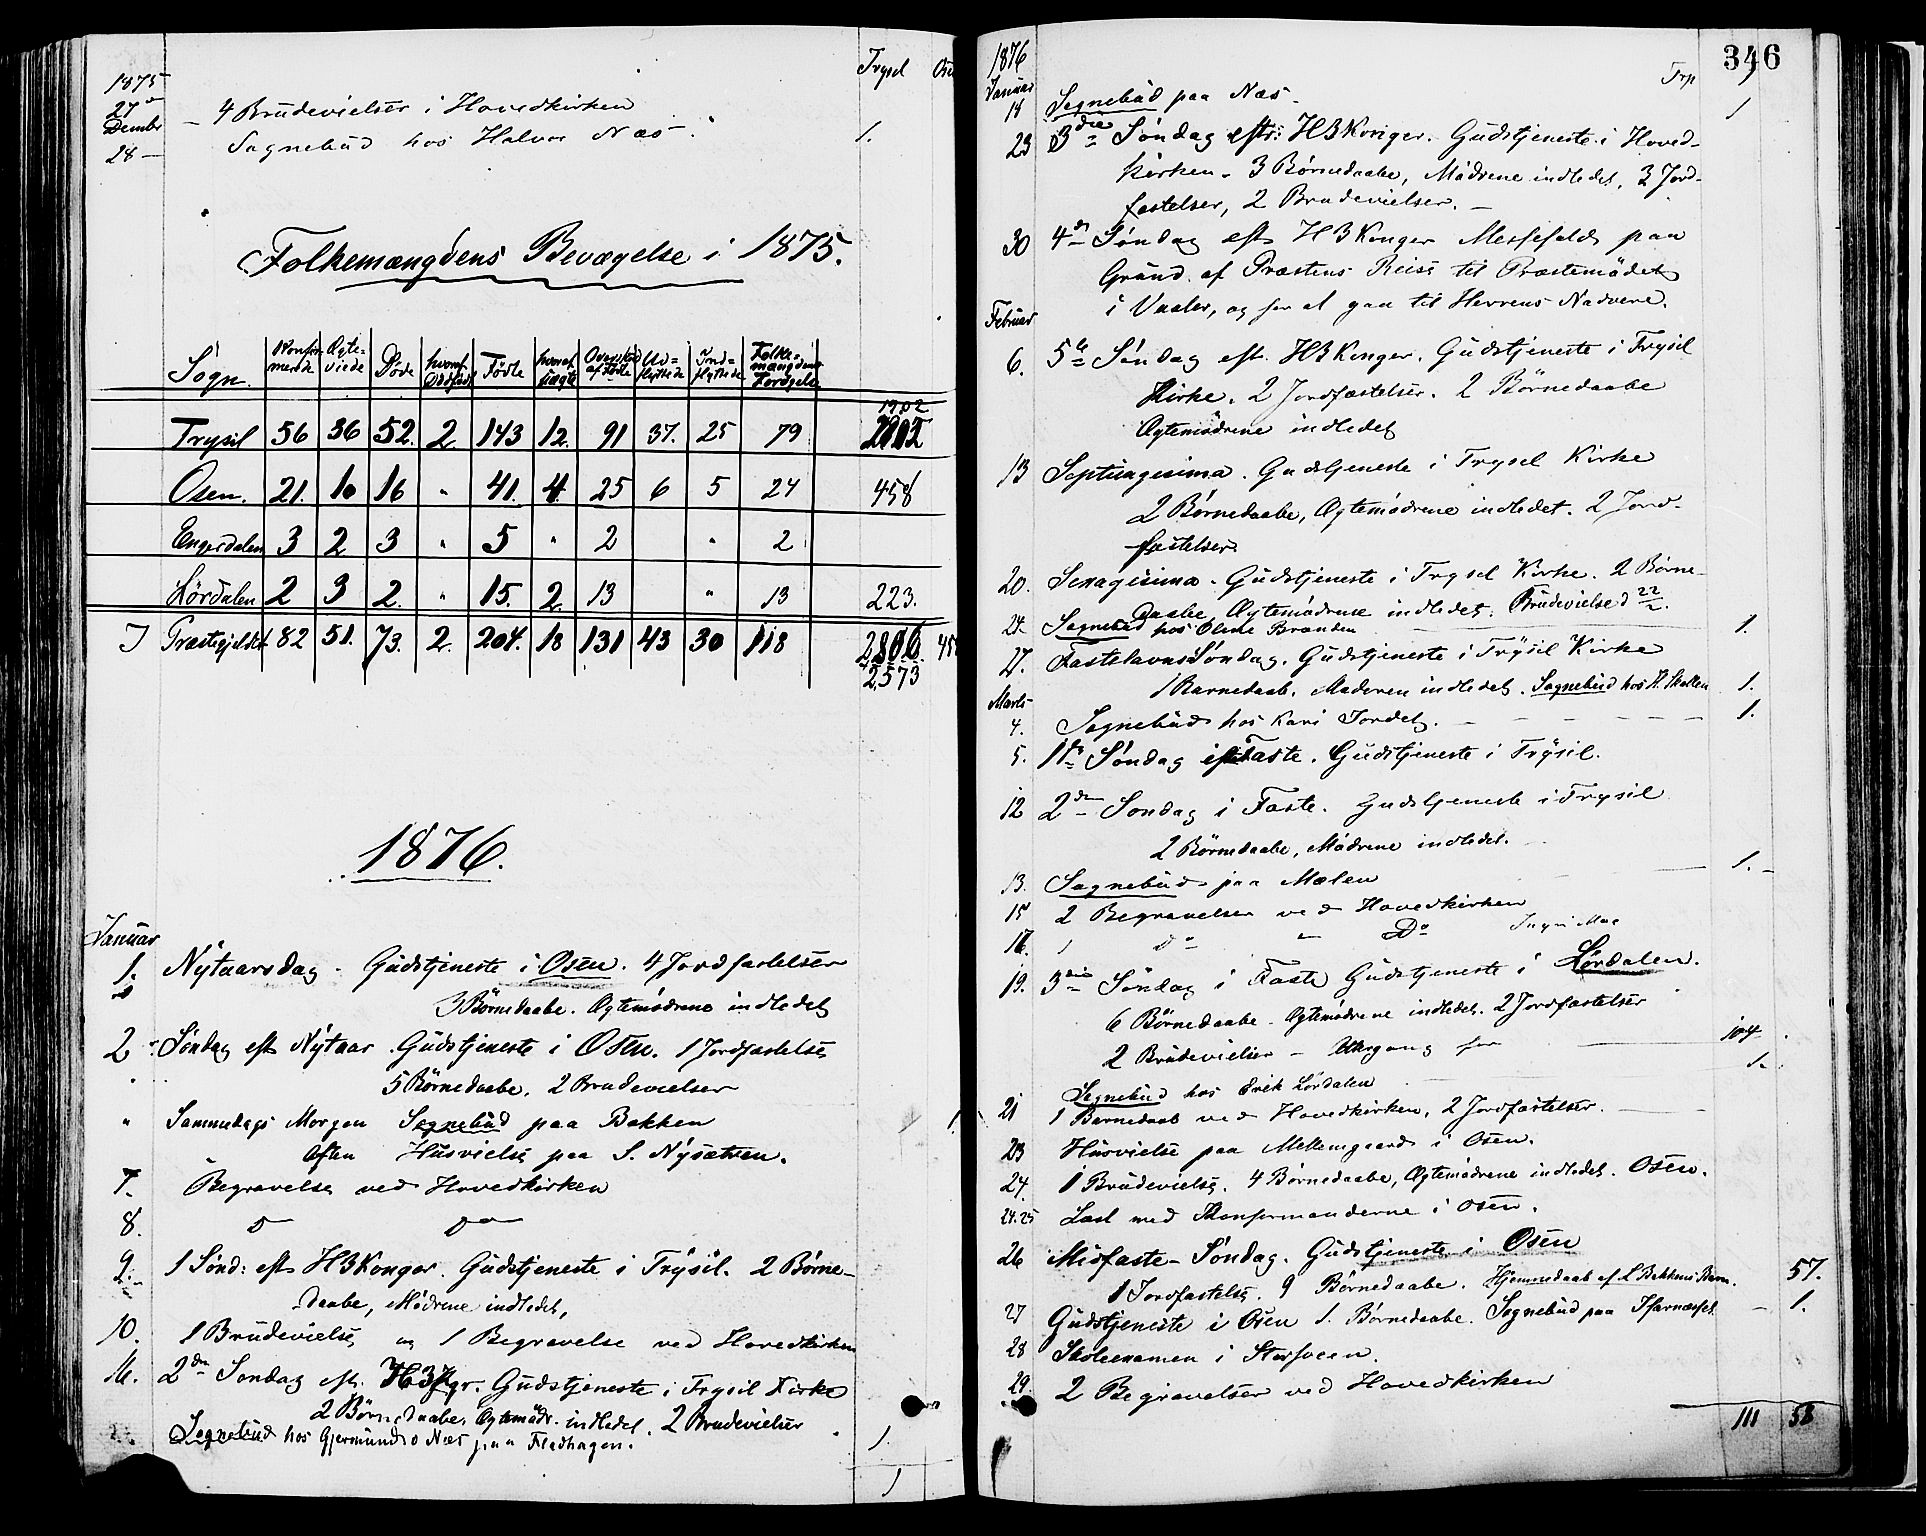 1875 Trysil Osen
27de 4 Brudevielser i Hovedkirken
Decembr
28 — Sognebud hos Halvor Næs — 1.
Folkemængdens Bevægelse i 1875.
Sogn. Konfirmerede Ægteviede Døde hvoraf Dødfødte Fødte hvoraf uægte Overskud af Fødte Udflyttede Indflyttede Folkemængdens Forøgelse
1902
Trysil 56 36 52. 2. 143 12. 91 37. 25 79
Osen. 21. 10 16 " 41. 4. 25 6 5 24 458
Engerdalen 3 2 3 " 5 " 2 " 2
Lördalen 2 3 2. " 15. 2. 13 " 13 223.
I Præstegjeldet 82 51. 73. 2. 204. 18 131 43 30 118 2806 458
2,573
1876.
Januar
1. Nytaarsdag. Gudstjeneste i Osen. 4 Jordfæstelser
3 Börnedaabe. Ægtemödrene indledet
2 Söndag eft Nytaar. Gudstjeneste i Osen. 1 Jordfæstelse
5 Börnedaabe. 2 Brudevielser
" Sammedags Morgen Sognebud paa Bakken 1.
Aften Husvielse paa S. Nysætren.
7. Begravelse ved Hovedkirken
8. do do
9. 1 Sönd: eft H3Konger. Gudstjeneste i Trysil. 2 Börne-
daabe, Mödrene indledet,
10. 1 Brudevielse og 1 Begravelse ved Hovedkirken
16. 2den Söndag eft. H3Kgr. Gudstjeneste i Trysil Kirke
2 Börnedaabe, Ægtemödr. indledet. 2 Brudevielser
Sognebud hos Gjermund o Næs paa Fladhagen. 1.
1
1876 346
Januar Trys
18 Sognebud paa Næs. 1
23 3die Söndag eftr: H3Konger. Gudstjeneste i Hoved-
kirken. 3 Börnedaabe, Mödrene indledet, 3 Jord-
fæstelser, 2 Brudevielser. —
30 4de Söndag eft H3Konger Messefald paa
Grund af Præstens Reise til Præstemödet
i Vaaler, og for at gaa til Herrens Nadvere.
Februar
6. 5te Söndag eft. H3Konger. Gudstjeneste i Trysil
Kirke. 2 Jordfæstelser. 2 Börnedaabe
Ægtemödrene indledet
13 Septuagesima. Gudstjeneste i Trysil Kirke
2 Börnedaabe, Ægtemödrene indledet. 2 Jord-
fæstelser.
20. Sexagesima. Gudstjeneste i Trysil Kirke. 2 Börne-
daabe, Ægtemödrene indledet. Brudevielse d 22/2.
24. Sognebud hos Oline Brænden 1.
27. Fastelavns Söndag. Gudstjeneste i Trysil Kirke
1 Barnedaab. Moderen indledet. Sognebud hos H. Skallen 1.
Marts
4. Sognebud hos Kari Jordet. — — — — 1.
5. 1te Söndag i Faste. Gudstjeneste i Trysil.
12 2den Söndag i Faste. Gudstjeneste i Trysil
2 Börnedaabe, Mödrene indledet.
13. Sognebud paa Mælen 1.
15 2 Begravelser ved Hovedkirken
16. 1 do " Do
19. 3die Söndag i Faste Gudstjeneste i Lördalen.
6 Börnedaabe. Ægtemödrene indledet. 2 Jordfæstelser
2 Brudevielser — Altergang for 104
Sognebud hos Erik Lördalen 1.
21 1 Barnedaab ved Hovedkirken, 2 Jordfæstelser.
23 Husvielse paa Mellemgaard i Osen.
24. 1 Brudevielse. 4 Börnedaabe, Ægtemödrene indledet. Osen.
24.25 Læst med Konfirmanderne i Osen.
26 Midfaste-Söndag. Gudstjeneste i Osen
1 Jordfæstelse. 9 Börnedaabe. Hjemmedaab af L Bakkens Barn. 57.
27 Gudstjeneste i Osen 1. Börnedaabe. Sognebud paa — 1.
28 Skoleexamen i Storsveen.
29. 2 Begravelser ved Hovedkirken
111 58